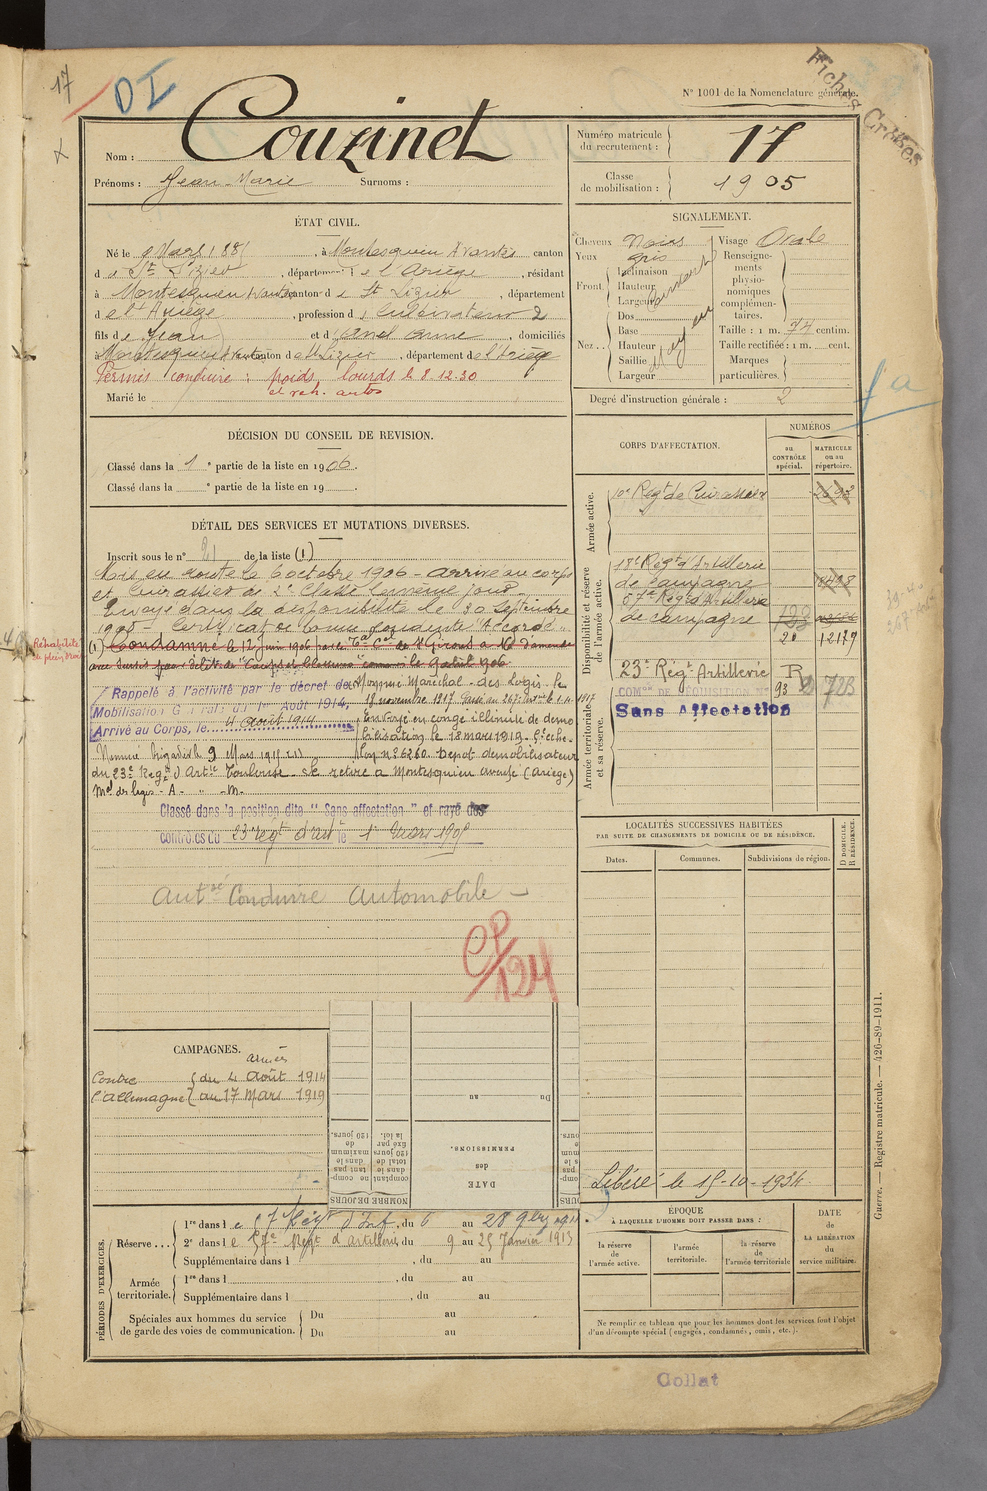 17
DI
Fiches Croisées
N° 1001 de la Nomenclature générale.
Nom : Couzinet
Prénoms : Jean-Marie Surnoms :
Numéro matricule du recrutement : 17
Classe de mobilisation : 1905
ÉTAT CIVIL.
Né le Mars 188 , à Montesquieu Avantès canton
d e St Lizier , département de l'Ariège , résidant
à Montesquieu Avantès canton d e St Lizier , département
d e l'Ariège , profession d cultivateur 2
fils d e Jean et d Anne , domiciliés
à Montesquieu Avantès canton d e St Lizier , département d e l'Ariège
Permis conduire : poids lourds le 8.12.30
Marié le
SIGNALEMENT.
Cheveux Noirs
Yeux gris
Front. Inclinaison
Hauteur
Largeur
Nez. Dos
Base
Hauteur
Saillie
Largeur
Moyen
Visage Ovale
Renseignements physionomiques complémentaires.
Taille : 1 m. 74 centim.
Taille rectifiée : 1 m. cent.
Marques particulières.
Degré d'instruction générale : 2
DÉCISION DU CONSEIL DE REVISION.
Classé dans la 1e partie de la liste en 1906.
Classé dans la e partie de la liste en 19 .
DÉTAIL DES SERVICES ET MUTATIONS DIVERSES.
Inscrit sous le n° 21 de la liste (1)
Mis en route le 6 octobre 1906 - arrivé au corps
et Cuirassier de 2e Classe le même jour.
Envoyé dans la disponibilité le 30 Septembre
1908 - Certificat de bonne conduite "Accordé"
Réhabilité de plein droit
(1) Condamné le 12 juin 1906 par le de St Girons à 16f d'amende
avec sursis pour délit de "Coups et blessures" commis le 9 avril 1906
Rappelé à l'activité par le décret de
Mobilisation Générale du 1er Août 1914,
Arrivé au Corps, le 4 août 1914
Nommé Maréchal-des Logis le
18 novembre 1917
Envoyé en congé illimité de démo
bilisation le 18 mars 1919.
Nommé Brigadier le 9 Mars 1915
n° 6260. Dépôt démobilisateur
du 23e Régt d'Artie Toulouse. Se retire à Montesquieu (Ariège)
Mal des logis - A - " - M -
Classé dans la position dite "Sans affectation" et rayé des
contrôles du 23e régt d'art le 1er Mars
Autsé Conduire automobile -
CP/124
CORPS D'AFFECTATION.
NUMÉROS
au CONTRÔLE spécial.
MATRICULE ou au répertoire.
Armée active.
10e Régt de Cuirassiers
Disponibilité et réserve de l'armée active.
18e Régt d'Artillerie
de Campagne
57e Régt d'Artillerie
de campagne
12179
23e Régt Artillerie R
Armée territoriale et sa réserve.
COMon DE RÉQUISITION N° 93
Sans Affectation
LOCALITÉS SUCCESSIVES HABITÉES
PAR SUITE DE CHANGEMENTS DE DOMICILE OU DE RÉSIDENCE.
Dates.
Communes.
Subdivisions de région.
D DOMICILE. R RÉSIDENCE.
Libéré le 15-10-1934
CAMPAGNES.
Contre l'Allemagne
armées
du 4 Août 1914
au 17 Mars 1919
Du au
DATE des PERMISSIONS.
NOMBRE DE JOURS
comptant dans le total de 120 jours fixé par la loi.
ne comptant pas dans le maximum de 120 jours.
PÉRIODES D'EXERCICES.
Réserve...
1re dans l e 57e Régt d'Inf , du 6 au 28 9bre
2e dans l e 57e Régt d'artillerie du 9 au 25 Janvier 1913
Supplémentaire dans l , du au
Armée territoriale.
1re dans l , du au
Supplémentaire dans l , du au
Spéciales aux hommes du service de garde des voies de communication.
Du au
Du au
ÉPOQUE
À LAQUELLE L'HOMME DOIT PASSER DANS :
la réserve de l'armée active.
l'armée territoriale.
la réserve de l'armée territoriale
DATE de LA LIBÉRATION du service militaire.
Ne remplir ce tableau que pour les hommes dont les services font l'objet
d'un décompte spécial (engagés, condamnés, omis, etc.).
Guerre. — Registre matricule. — 426-89-1911.
Collat